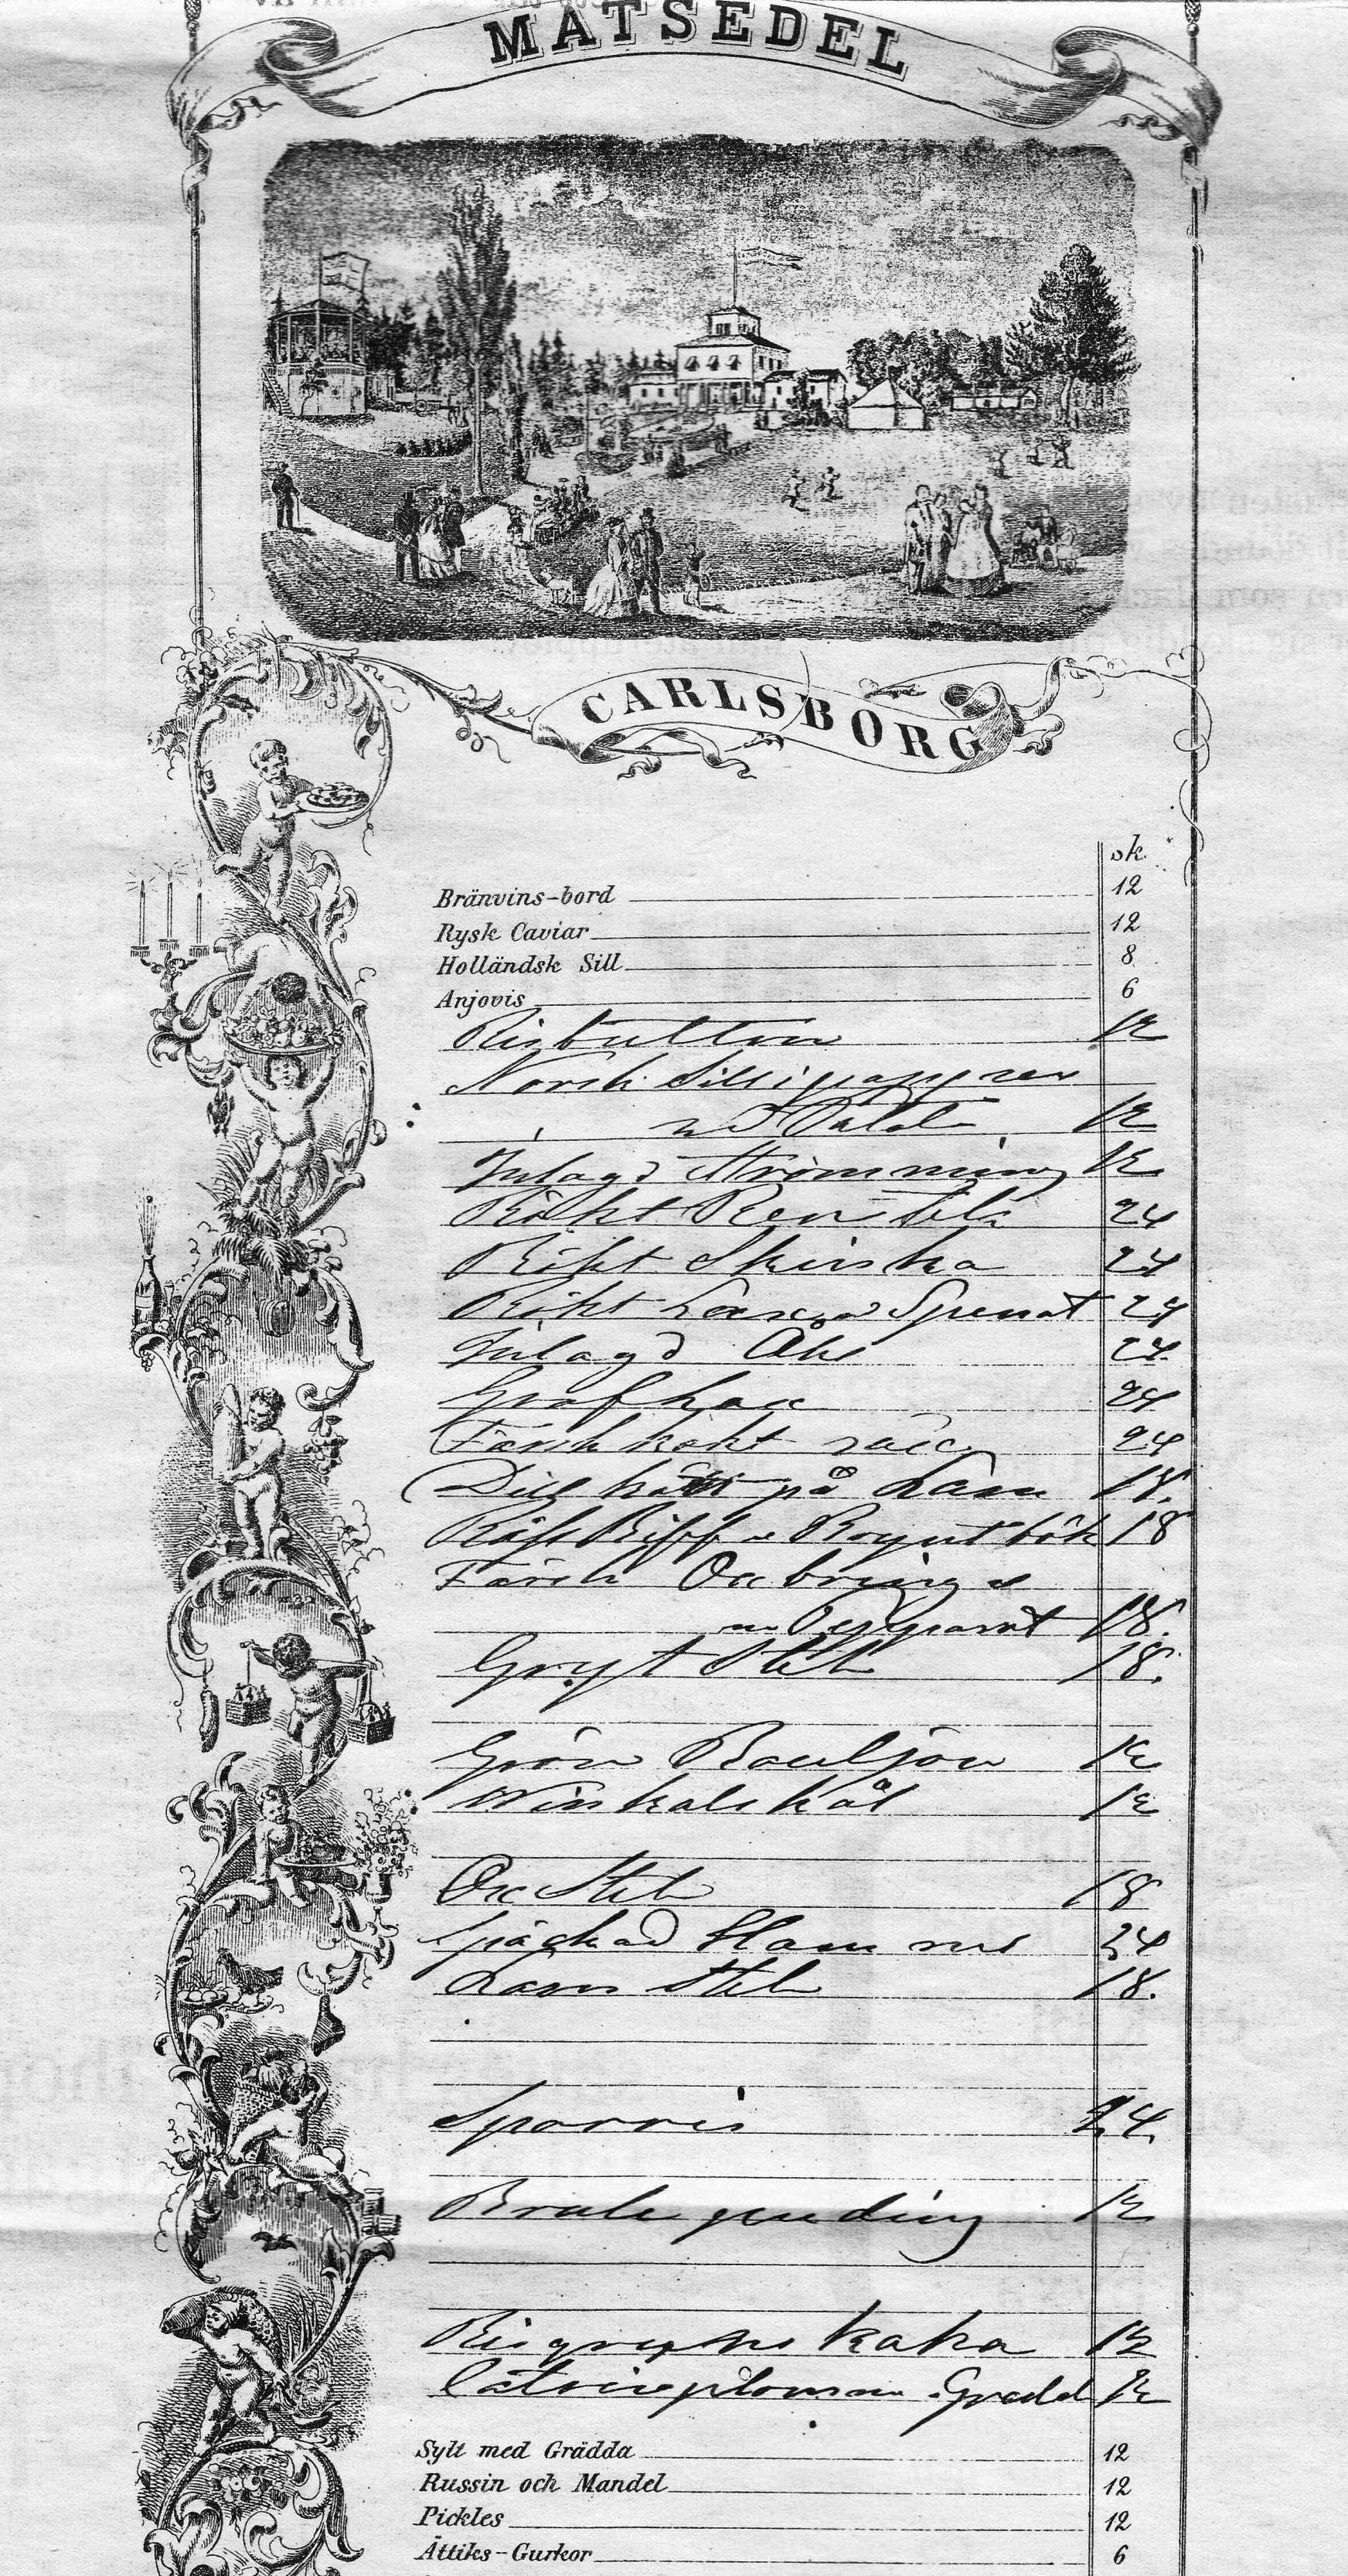 MATSEDEL
CARLSBORG
sk.
Bränvins-bord 12
Rysk Caviar 12
Holländsk Sill 8
Anjovis 6
12
Norsk Sill i papper
12
Inlagd Strömming 12
Rökt Ren Stek 24
Rökt Skinka 24
Rökt Lax Spenat 24
Inlagd Åhl 24
Graf Lax 24
Färsk kokt Lax 24
Dill kött på Lam 18.
18
Färsk Oxbringa
18.
Gryt Stek 18.
Grön Bouljon 12
kål 12
Ox Stek 18
Späckad Hammel 24
Lam Stek 18.
Sparris 24.
puding 12
Risgryns kaka 12
Catrinplommon Grädd 12
Sylt med Grädda 12
Russin och Mandel 12
Pickles 12
Ättiks-Gurkor 6